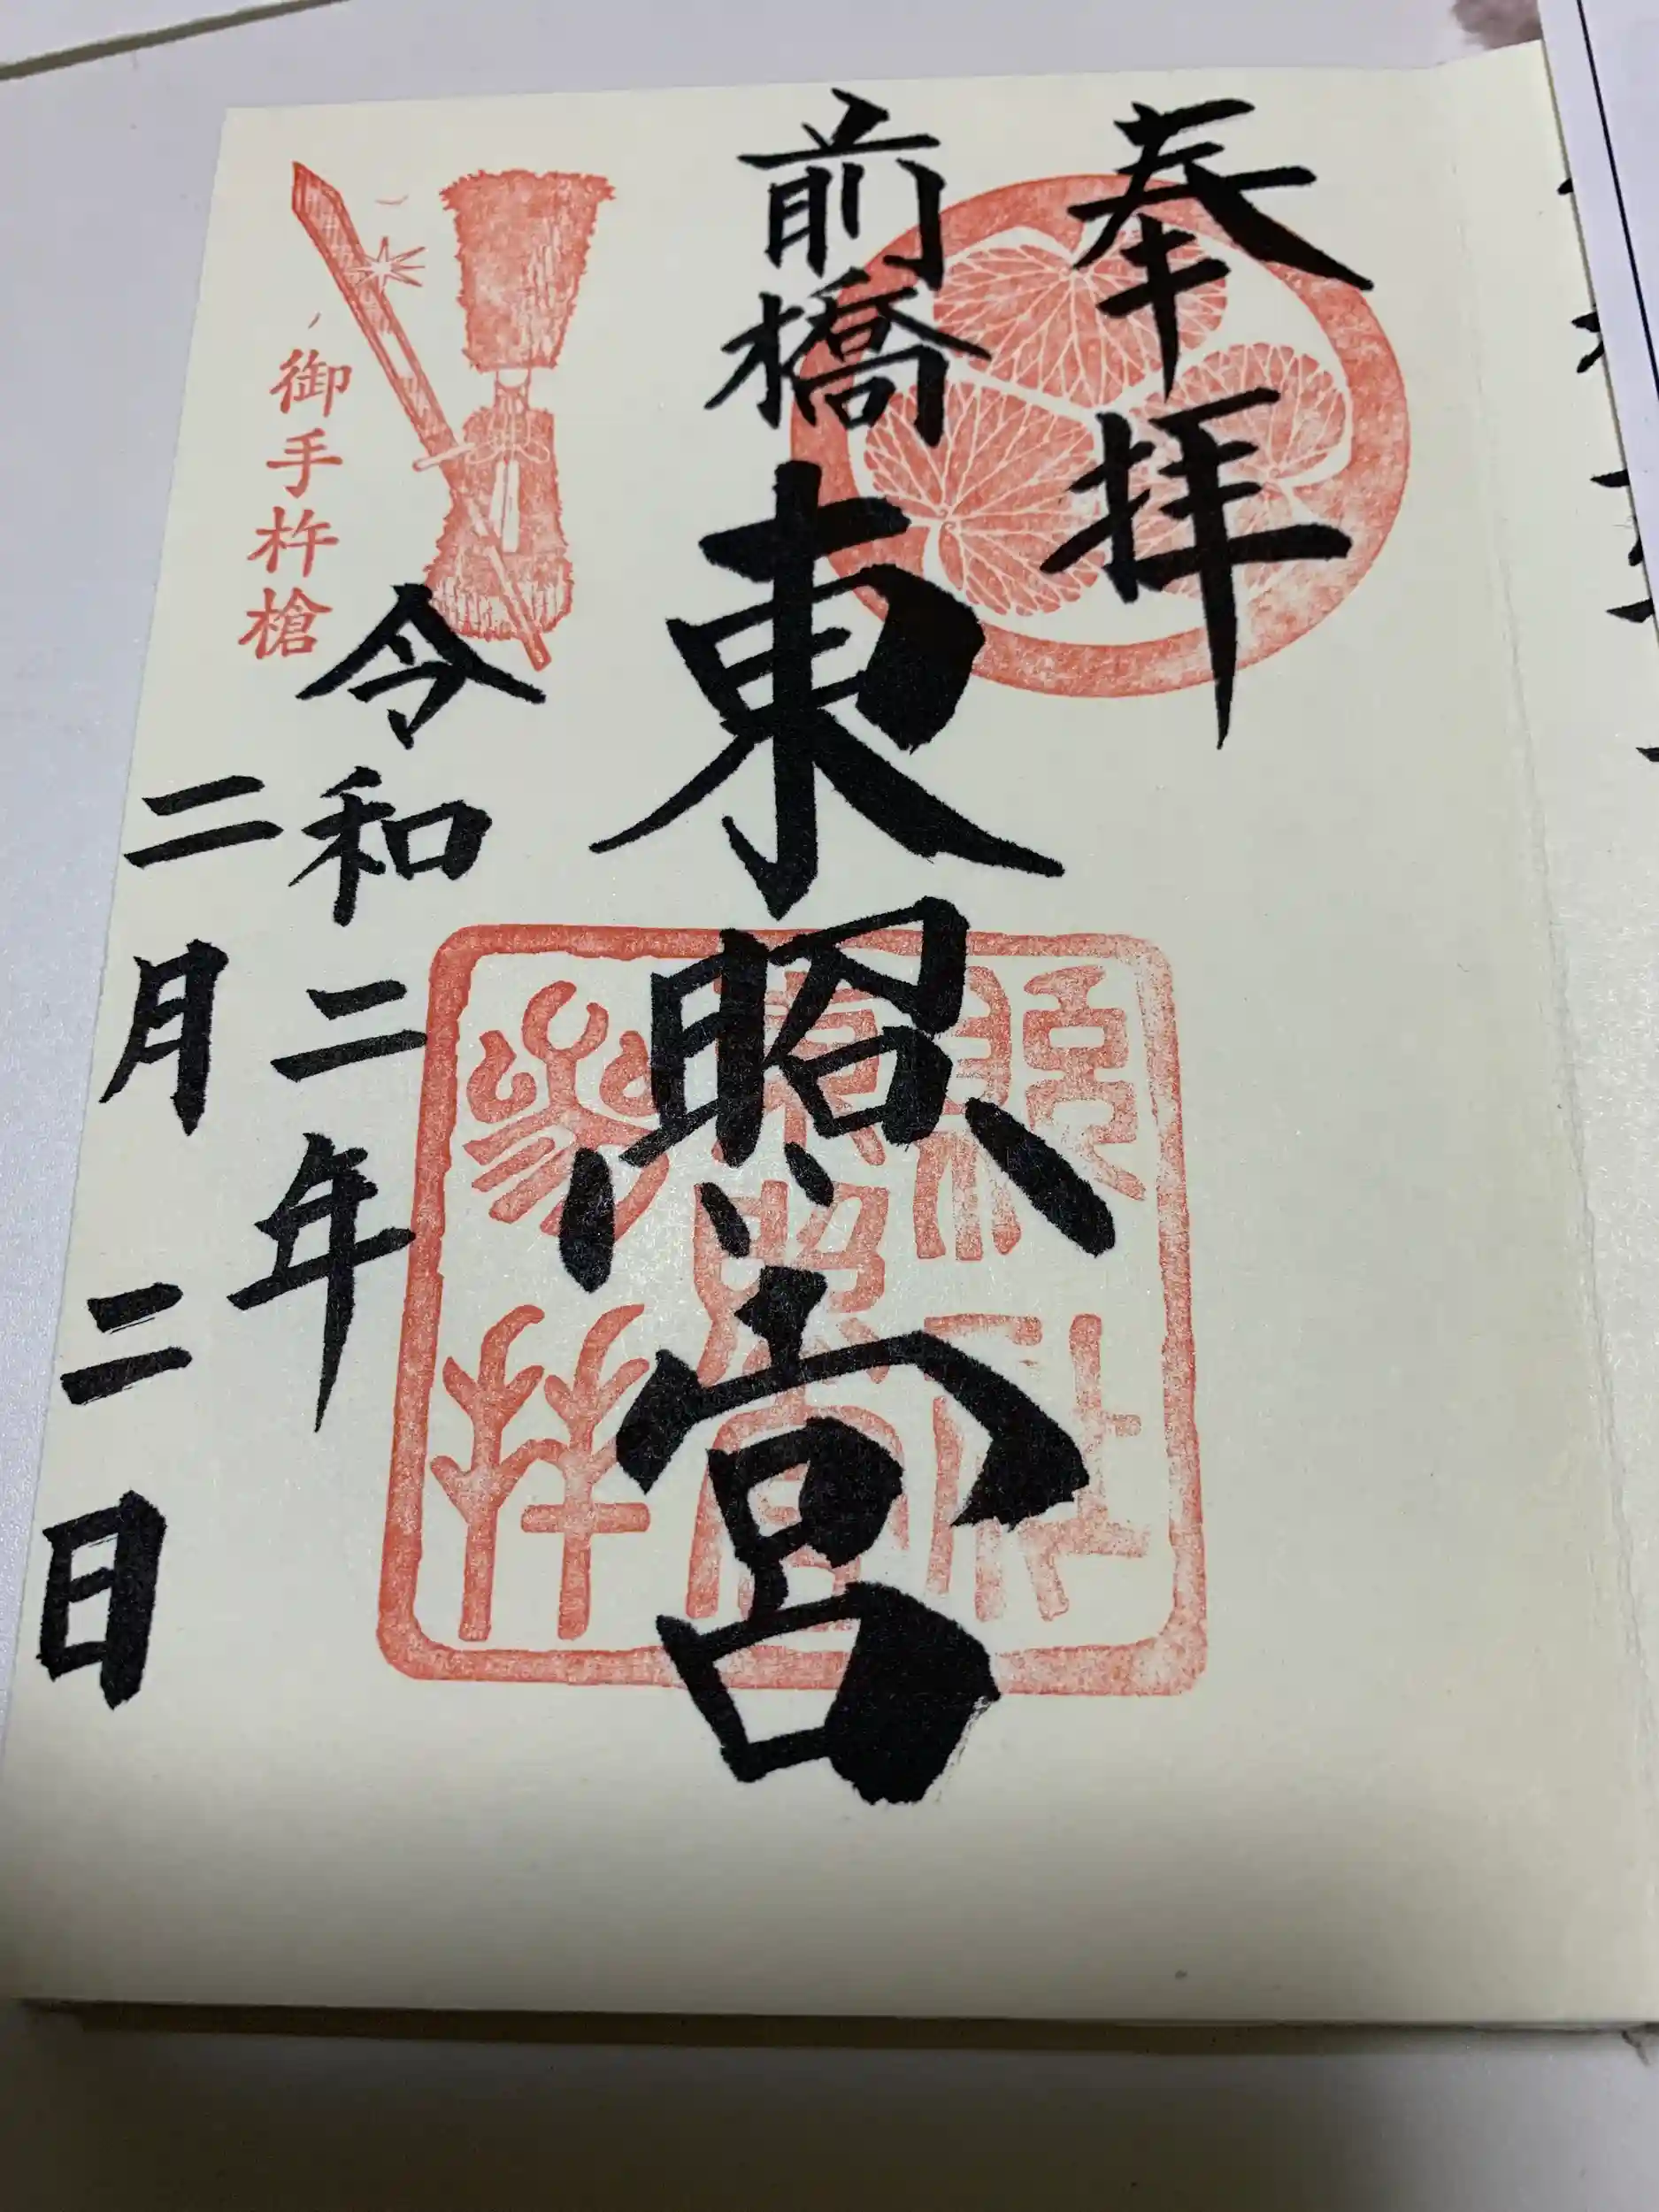 奉拝
前橋東照宮
令和二年
二月二日
御手杵槍